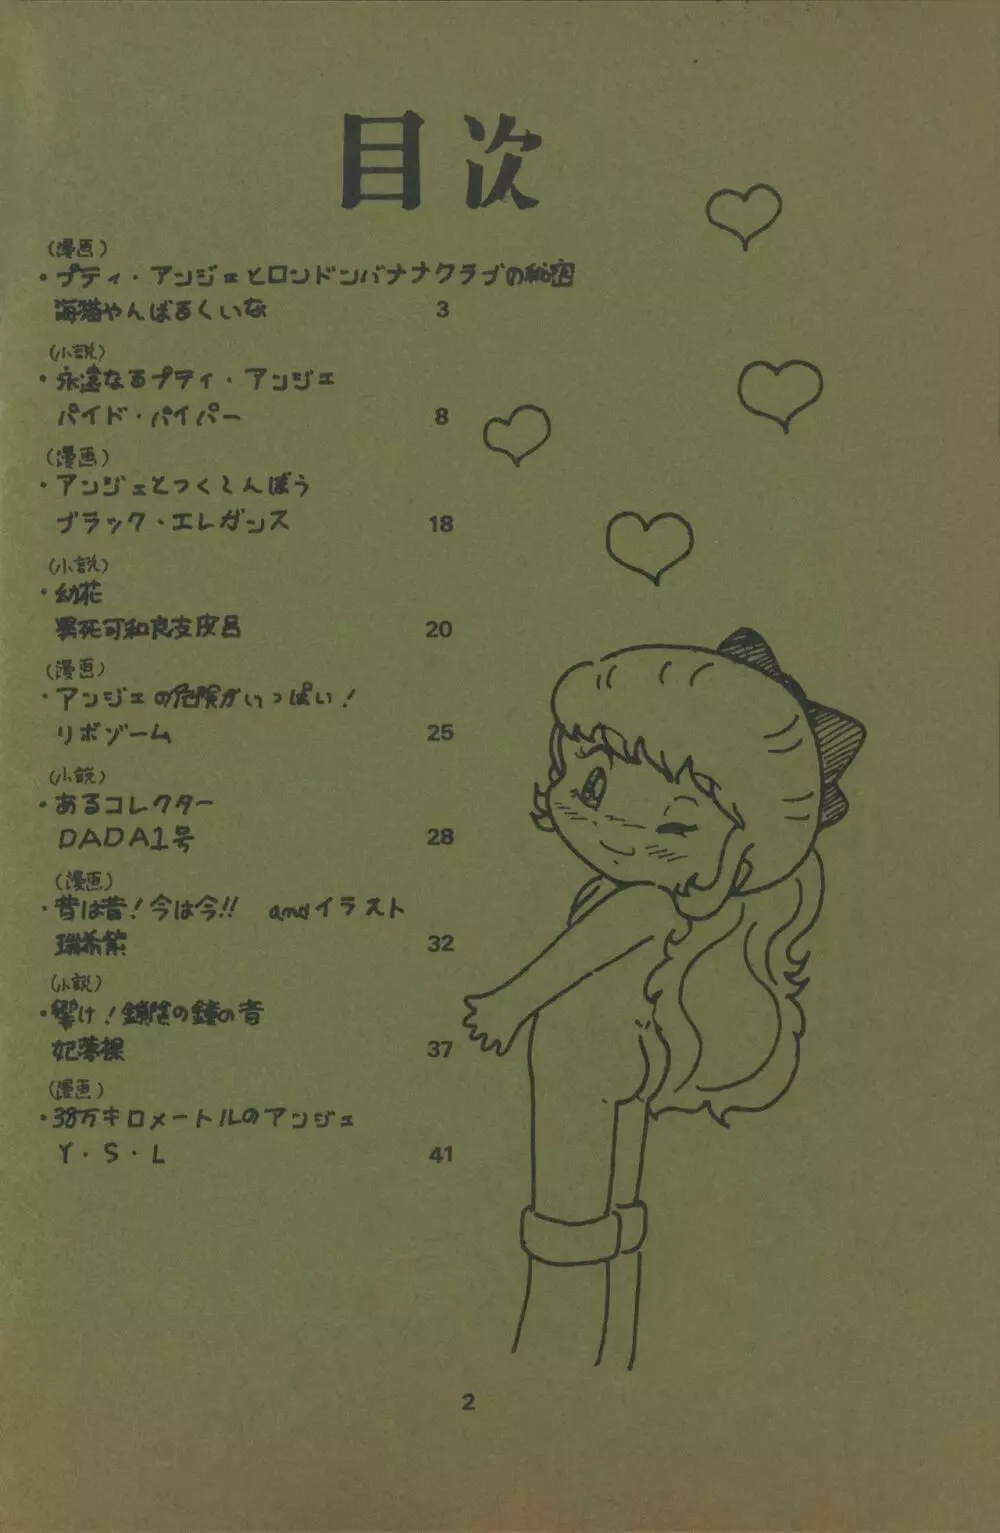 目次
(漫画)
・プティ・アンジェとロンドンバナナクラブの秘密
海猫やんばるくいな 3
(小説)
・永遠なるプティ・アンジェ
パイド・パイパー 8
(漫画)
・アンジェとつくしんぼう
ブラック・エレガンス 18
(小説)
・幼花
男死可和良支皮呂 20
(漫画)
・アンジェの危険がいっぱい!
リボゾーム 25
(小説)
・あるコレクター
DADA1号 28
(漫画)
・昔は昔!今は今!! andイラスト
瑞希紫 32
(小説)
・響け!鎖陰の鐘の音
妃夢裸 37
(漫画)
・38万キロメートルのアンジェ
Y・S・L 41
2